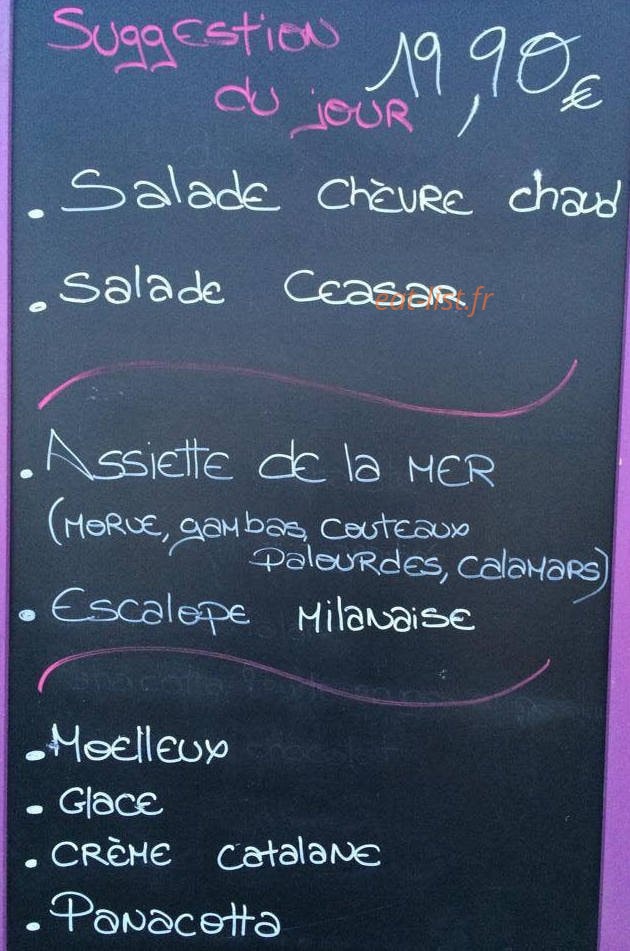 Suggestion
19,90€
du jour
. Salade chèvre chaud
. Salade Ceasar
eat-list.fr
. Assiette de la mer
(morue, gambas, couteaux
palourdes, calamars)
. Escalope milanaise
. Moelleux
. Glace
. Crème catalane
. Panacotta